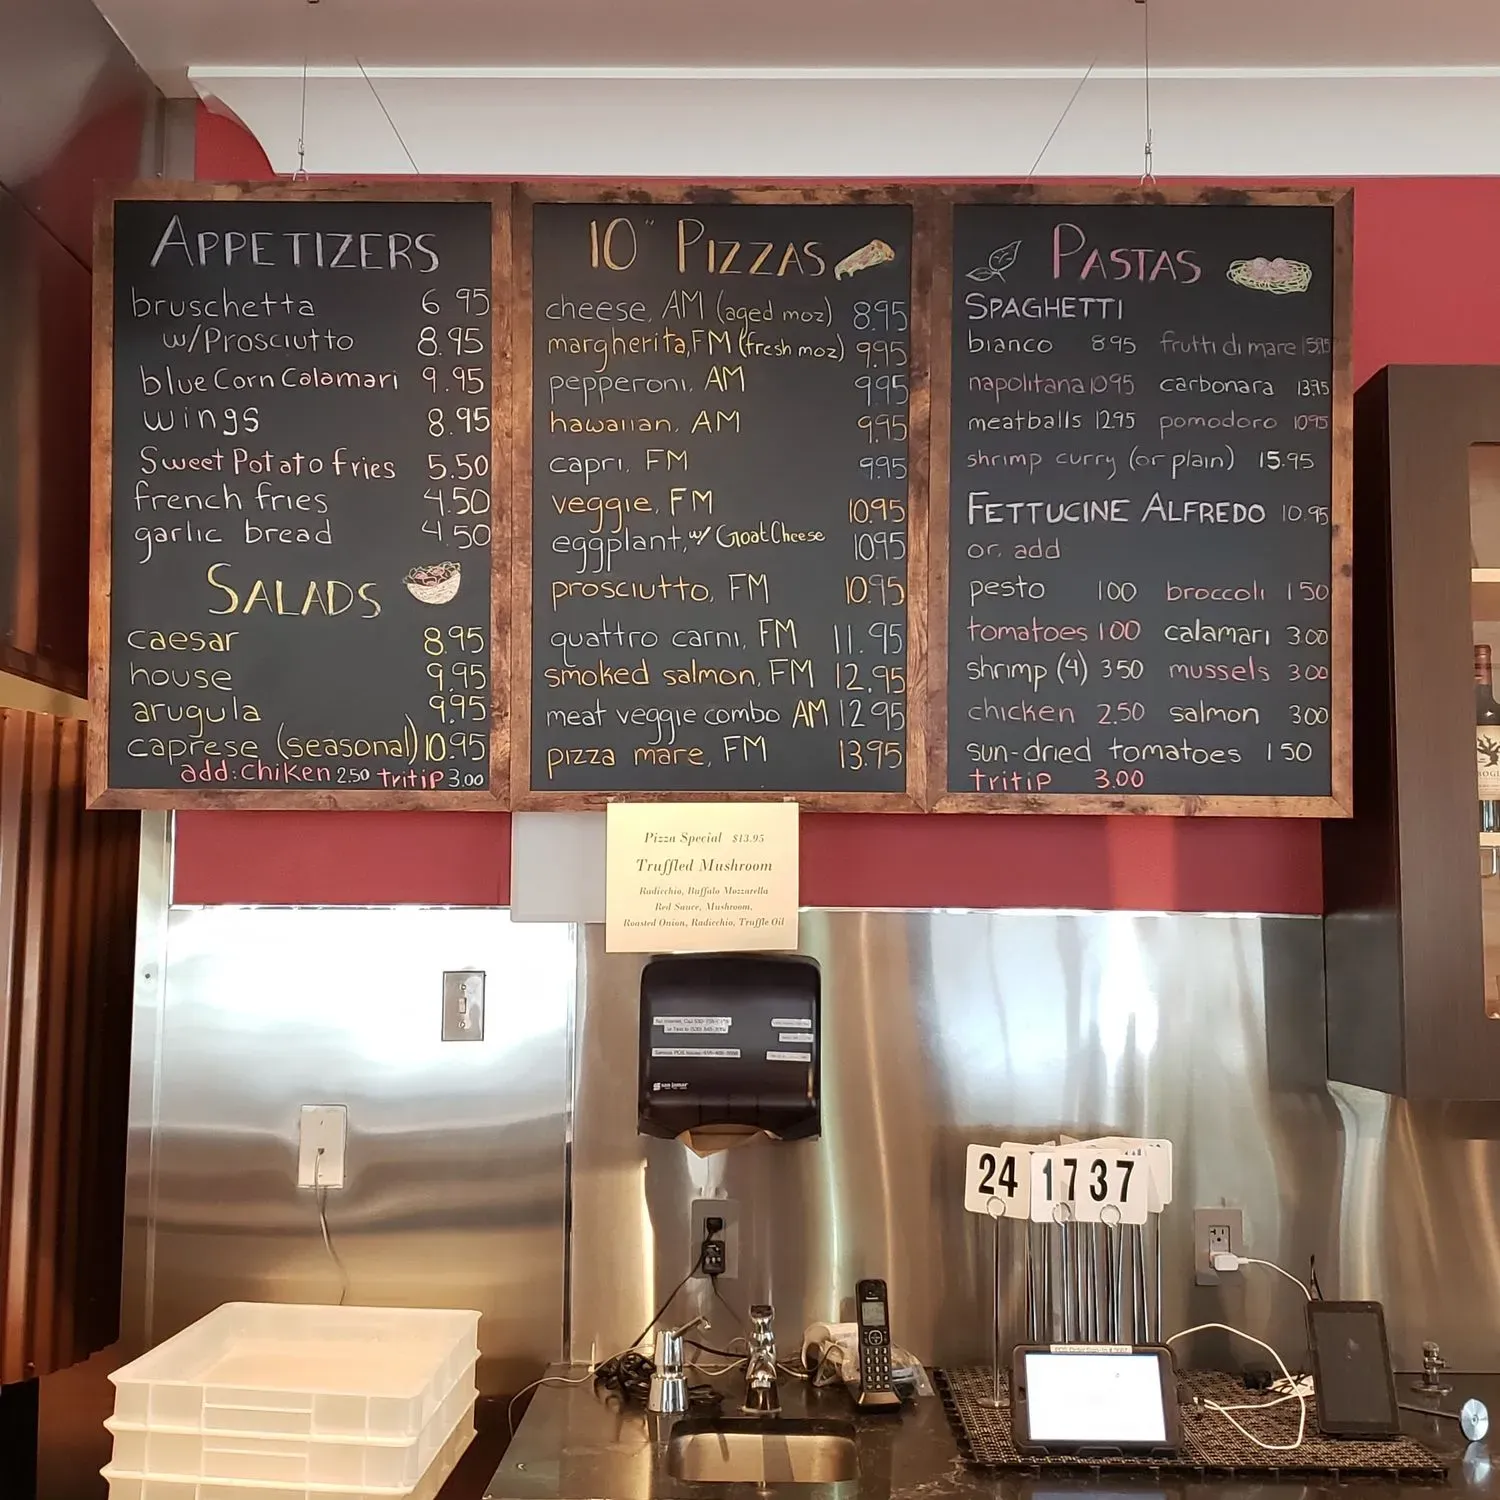 APPETIZERS
bruschetta 6 95
w/Prosciutto 8.95
blue Corn Calamari 9.95
wings 8.95
Sweet Potato fries 5.50
french fries 4.50
garlic bread 4.50
SALADS
caesar 8.95
house 9.95
arugula 9.95
caprese (seasonal) 10.95
add: Chiken 2.50 tritip 3.00
10" PIZZAS
cheese, AM (aged moz) 8.95
margherita, FM (fresh moz) 9.95
pepperoni, AM 9.95
hawaiian, AM 9.95
capri, FM 9.95
veggie, FM 10.95
eggplant, w/ Goat Cheese 10.95
prosciutto, FM 10.95
quattro carni, FM 11.95
smoked salmon, FM 12.95
meat veggie combo AM 12.95
pizza mare, FM 13.95
PASTAS
SPAGHETTI
bianco 8.95 frutti di mare 15.95
napolitana 10.95 carbonara 13.95
meatballs 12.95 pomodoro 10.95
shrimp curry (or plain) 15.95
FETTUCINE ALFREDO 10.95
or. add
pesto 1 00 broccoli 1 50
tomatoes 1 00 calamari 3 00
shrimp (4) 3 50 mussels 3 00
chicken 2.50 salmon 3 00
sun-dried tomatoes 1 50
tritip 3.00
Pizza Special $13.95
Truffled Mushroom
Radicchio, Buffalo Mozzarella
Red Sauce, Mushroom,
Roasted Onion, Radicchio, Truffle Oil
san jamar
24 17 37